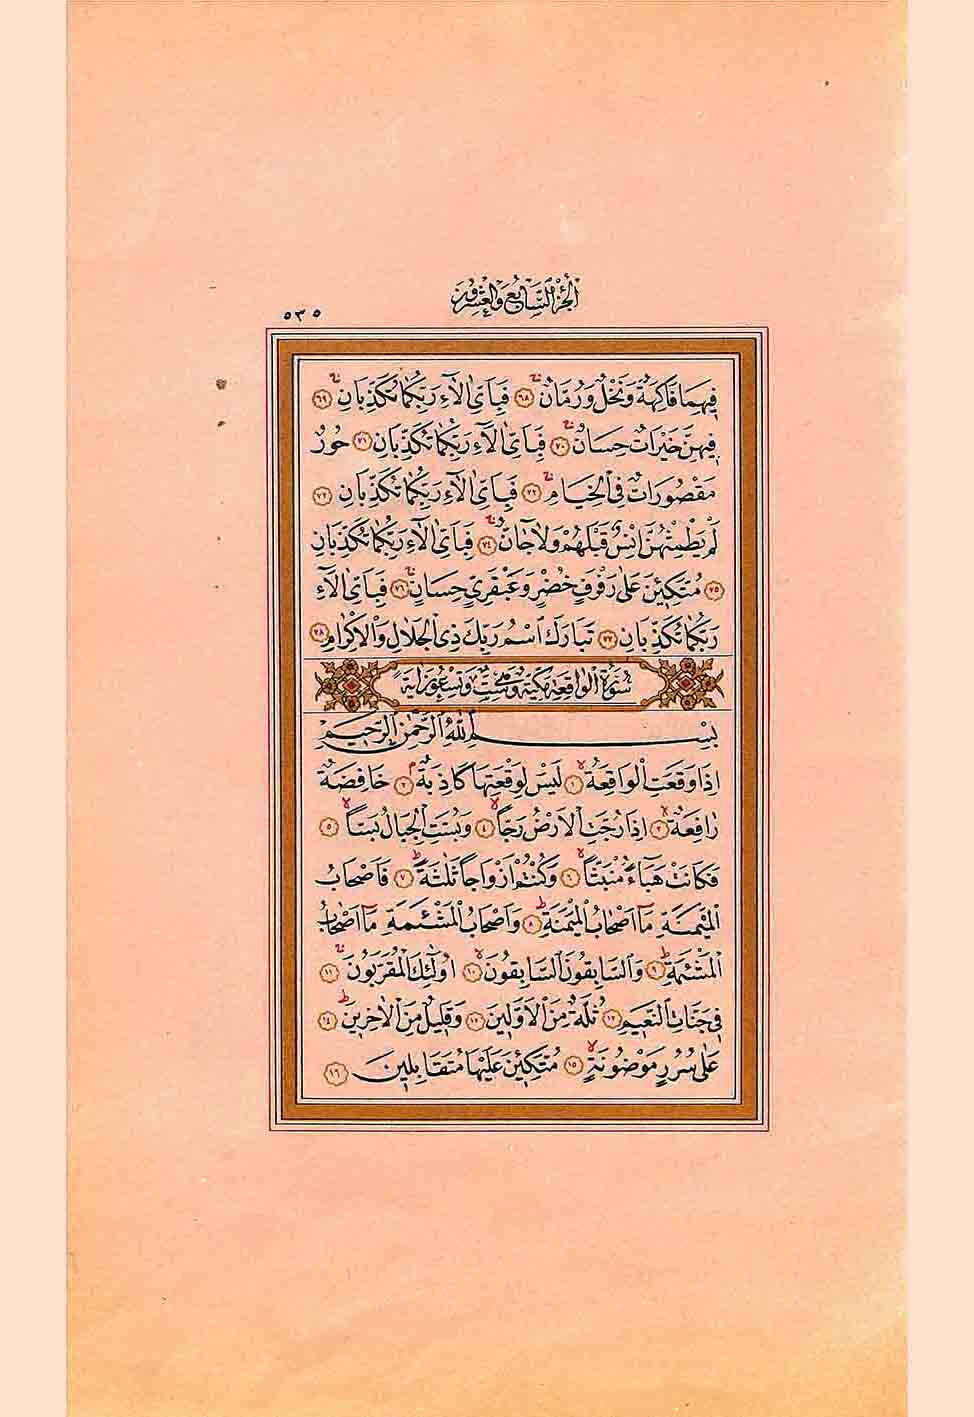 الجزء السابع والعشرون
٥٣٥
فِيهِمَا فَاكِهَةٌ وَنَخْلٌ وَرُمَّانٌۚ ﴿٦٨﴾ فَبِاَيِّ اٰلَٓاءِ رَبِّكُمَا تُكَذِّبَانِۚ ﴿٦٩﴾
فِيهِنَّ خَيْرَاتٌ حِسَانٌۚ ﴿٧٠﴾ فَبِاَيِّ اٰلَٓاءِ رَبِّكُمَا تُكَذِّبَانِ ﴿٧١﴾ حُورٌ
مَقْصُورَاتٌ فِي الْخِيَامِۚ ﴿٧٢﴾ فَبِاَيِّ اٰلَٓاءِ رَبِّكُمَا تُكَذِّبَانِ ﴿٧٣﴾
لَمْ يَطْمِثْهُنَّ اِنْسٌ قَبْلَهُمْ وَلَا جَٓانٌّۚ ﴿٧٤﴾ فَبِاَيِّ اٰلَٓاءِ رَبِّكُمَا تُكَذِّبَانِ
﴿٧٥﴾ مُتَّكِـِٔينَ عَلٰى رَفْرَفٍ خُضْرٍ وَعَبْقَرِيٍّ حِسَانٍۚ ﴿٧٦﴾ فَبِاَيِّ اٰلَٓاءِ
رَبِّكُمَا تُكَذِّبَانِ ﴿٧٧﴾ تَبَارَكَ اسْمُ رَبِّكَ ذِي الْجَلَالِ وَالْاِكْرَامِ ﴿٧٨﴾
سُورَةُ الْوَاقِعَةِ مَكِّيَّةٌ وَهِيَ سِتٌّ وَتِسْعُونَ اٰيَةً
بِسْمِ اللّٰهِ الرَّحْمٰنِ الرَّحِيمِ
اِذَا وَقَعَتِ الْوَاقِعَةُۙ ﴿١﴾ لَيْسَ لِوَقْعَتِهَا كَاذِبَةٌۢ ﴿٢﴾ خَافِضَةٌ
رَافِعَةٌۙ ﴿٣﴾ اِذَا رُجَّتِ الْاَرْضُ رَجًّاۙ ﴿٤﴾ وَبُسَّتِ الْجِبَالُ بَسًّاۙ ﴿٥﴾
فَكَانَتْ هَبَٓاءً مُنْبَثًّاۙ ﴿٦﴾ وَكُنْتُمْ اَزْوَاجًا ثَلٰثَةًۜ ﴿٧﴾ فَاَصْحَابُ
الْمَيْمَنَةِ مَٓا اَصْحَابُ الْمَيْمَنَةِۜ ﴿٨﴾ وَاَصْحَابُ الْمَشْـَٔمَةِ مَٓا اَصْحَابُ
الْمَشْـَٔمَةِۜ ﴿٩﴾ وَالسَّابِقُونَ السَّابِقُونَۙ ﴿١٠﴾ اُو۬لٰٓئِكَ الْمُقَرَّبُونَۚ ﴿١١﴾
فِي جَنَّاتِ النَّعِيمِ ﴿١٢﴾ ثُلَّةٌ مِنَ الْاَوَّلِينَۙ ﴿١٣﴾ وَقَلِيلٌ مِنَ الْاٰخِرِينَۜ ﴿١٤﴾
عَلٰى سُرُرٍ مَوْضُونَةٍۙ ﴿١٥﴾ مُتَّكِـِٔينَ عَلَيْهَا مُتَقَابِلِينَ ﴿١٦﴾